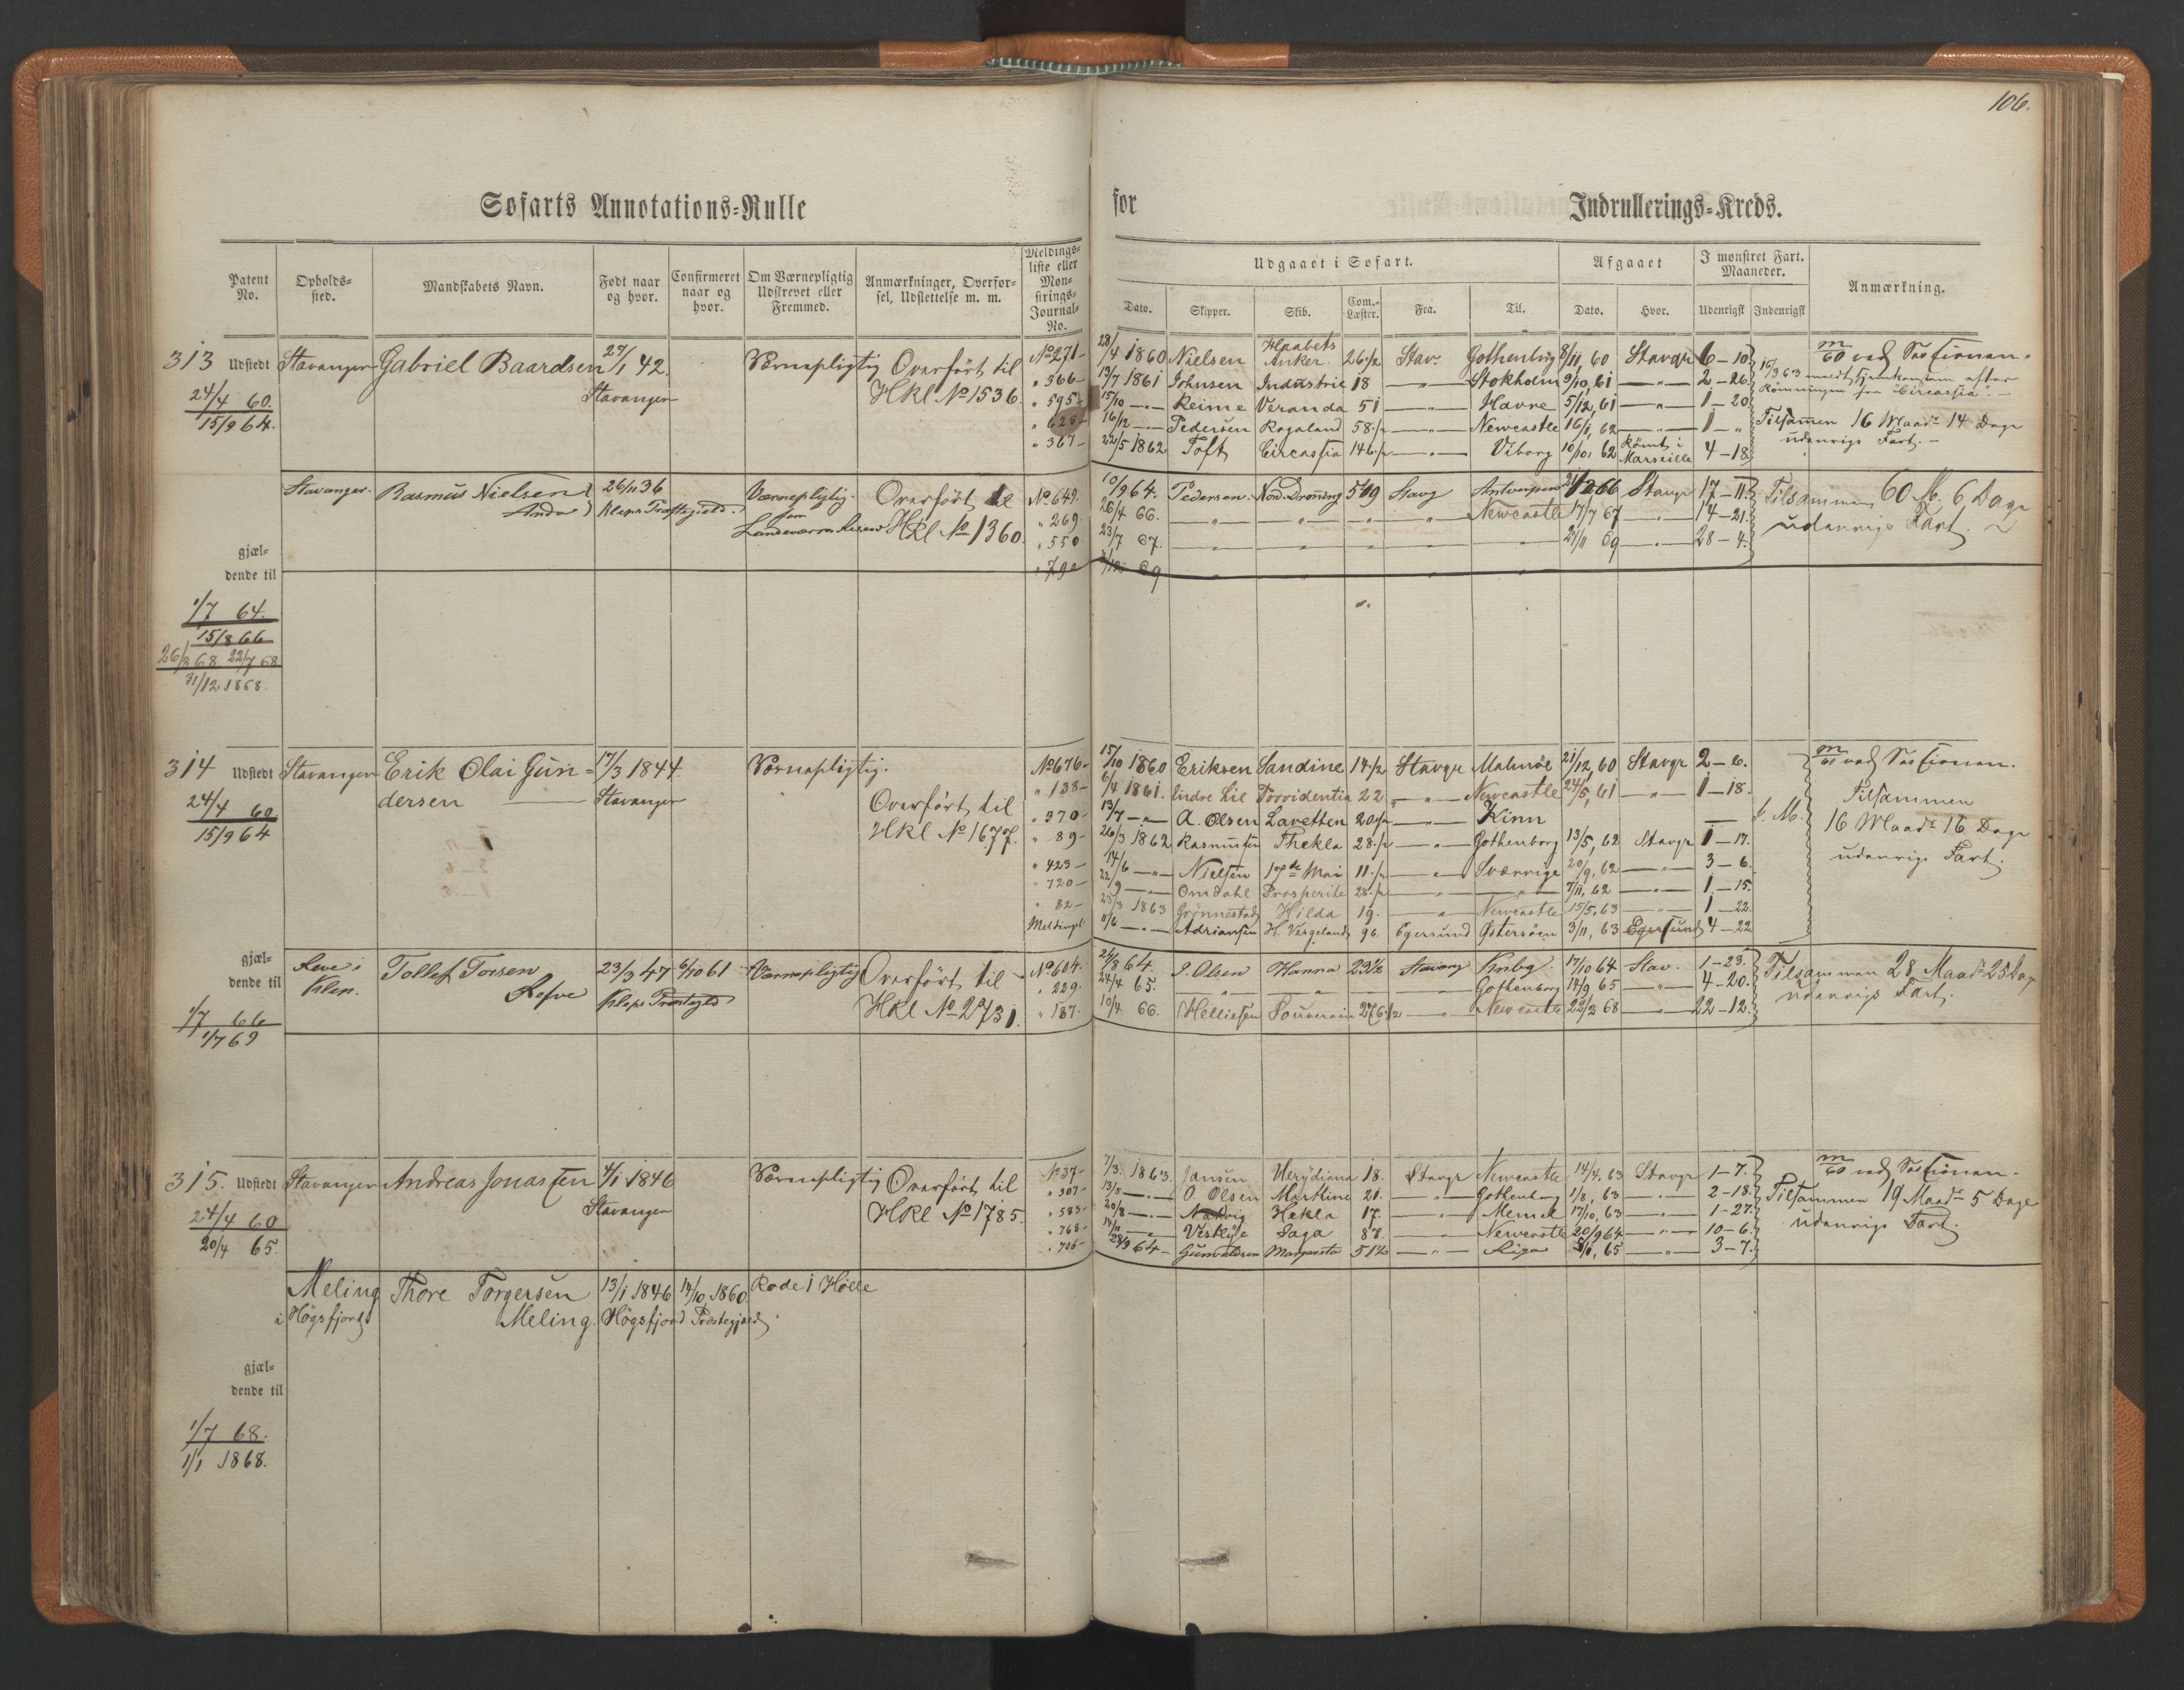 106.
Søfarts Annotations-Rulle for Indrullerings-Kreds.
Patent No. Opholds-sted. Mandskabets Navn. Født naar og hvor. Confirmeret naar og hvor. Om Værnepligtig Udskrevet eller Fremmed. Anmærkninger, Overførsel, Udslettelse m. m. Meldings-liste eller Mønstrings-Journal-No.
Udgaaet i Søfart. Afgaaet I mønstret Fart. Maaneder. Anmærkning.
Dato. Skipper. Skib. Com.-Læster. Fra. Til. Dato. Hvor. Udenrigsk Indenrigsk
313 Udstedt Stavanger Gabriel Baardsen 27/1 42. Værnepligtig Overført til No 271 28/4 1860 Nielsen Haabets Anker 26 1/2 Stav. Gothenborg 8/11 60 Stavgr 6–10
24/4 60. Stavanger HKl No 1536. " 366 13/7 1861 Johnsen Industrie 18 —"— Stokholm 9/10, 61 —"— 2–26
15/9 64. " 595 15/10 —"— Reime Veranda 51 —"— Havre 5/12, 61 —"— 1–20
" 625 16/12 —"— Pedersen Rogaland 58 1/2 —"— Newcastle 16/1, 62 —"— 1–"
" 367 22/5 1862 Toft Circassia 146 1/2 —"— Viborg 10/10, 62 Römt i Marseille 4–18
Tilsammen 16 Maadr 14 Dage
udenrigs Fart.
Stavanger. Rasmus Nielsen 26/11 36 Værnepligtig. Overført til No 649. 10/9 64. Pedersen. Nord. Dronning 519 Stavg Antwerpen 66 Stavgr 17–11.
Anda Kleps Præstegield. som HKl No 1360. " 269. 26/4 66. —"— —"— " " Newcastle 17/7 67 —"— 14–21.
" 550 23/7 67. —"— —"— 21/11 69 —"— 28–4.
" 790 69 " " " " "
Tilsammen 60 M. 6 Dage
udenrigs Fart.
gjæl-
dende til
1/7 64.
15/8 66
26/3 68 22/7 68
31/12 1868.
314 Udstedt Stavanger Erik Olai Gun- 17/3 1844. Værnepligtig. No 676 15/10 1860 Eriksen Sandine 14 1/2 Stavgr Malmöe 21/12, 60 Stavgr 2–6.
24/4 60 dersen — Stavanger Overført til " 138 6/4 1861. Endre Lie Providentia 22 —"— Newcastle 24/5, 61 —"— 1–18.
15/9 64 HKl No 1677. " 370 13/7 —"— A. Olsen Lavetten 20 1/2 —"— Kinn
" 89 26/3 1862 Rasmussen Thekla 28 1/2 —"— Gothenborg 13/5, 62 Stavgr 1–17.
" 423 14/6 —"— Nielsen 17de Mai 11 1/2 —"— Sværrige 20/9, 62 —"— 3–6.
" 720 22/9 —"— Omdahl Prosperite 28 1/2 —"— 7/11, 62 —"— 1–15.
" 82 23/3 1863 Grönnestad Hilda 19. —"— Newcastle 15/5, 63 —"— 1–22.
Meldingsl. 11/6 —"— Adriansen H. Vergeland 96. Egersund Östersöen 3/11, 63 Egersund 4–22
Tilsammen
16 Maadr 16 Dage
udenrigs Fart.
gjæl-
dende til
Reve i Klep. Tollef Torsen 23/3 47 6/10 61 Værnepligtig Overført til No 604. 24/8 64. J. Olsen Hanna 23 1/2 Stavang Knbg. 17/10 64 Stav. 1–23.
Refve Kleps Præstegld HKl No 2731. " 229. 24/4 65. —"— —"— Gothenborg 14/9 65 —"— 4–20.
" 187. 10/4 66. Helliesen Souverain 276 1/2 —"— Newcastle 22/2 68 —"— 22–12.
Tilsammen 28 Maadr 25 Dag
udenrigs Fart.
1/7 66
1/7 69
315. Udstedt Stavanger Andreas Jonassen 4/1 1846 Værnepligtig Overført til No 37 7/3. 1863. Jansen Merydiana 18. Stavgr Newcastle 14/4, 63 Stavgr 1–7.
24/4 60 Stavanger HKl No 1785. " 307 13/5 —"— O. Olsen Marthine 21. —"— Gothenborg 1/8, 63 —"— 2–18.
20/4 65. " 583 20/8 —"— Natvig Hekla 17. —"— Memel 17/10, 63 —"— 1–27.
" 768 14/11 —"— Vestlye Saga 87. —"— Newcastle 20/9 64 —"— 10–6.
" 706 29/9 64 Gunvaldsen Margareta 51 1/2 —"— Riga 65 —"— 3–7.
Tilsammen 19 Maadr 5 Dage
udenrigs Fart.
Meling Thore Torgersen 13/1 1846 14/10, 1860. Rode i Hölle
i Högsfjord Meling. Högsfjord Præstegjæld.
gjæl-
dende til
1/7 68.
1/1 1868.